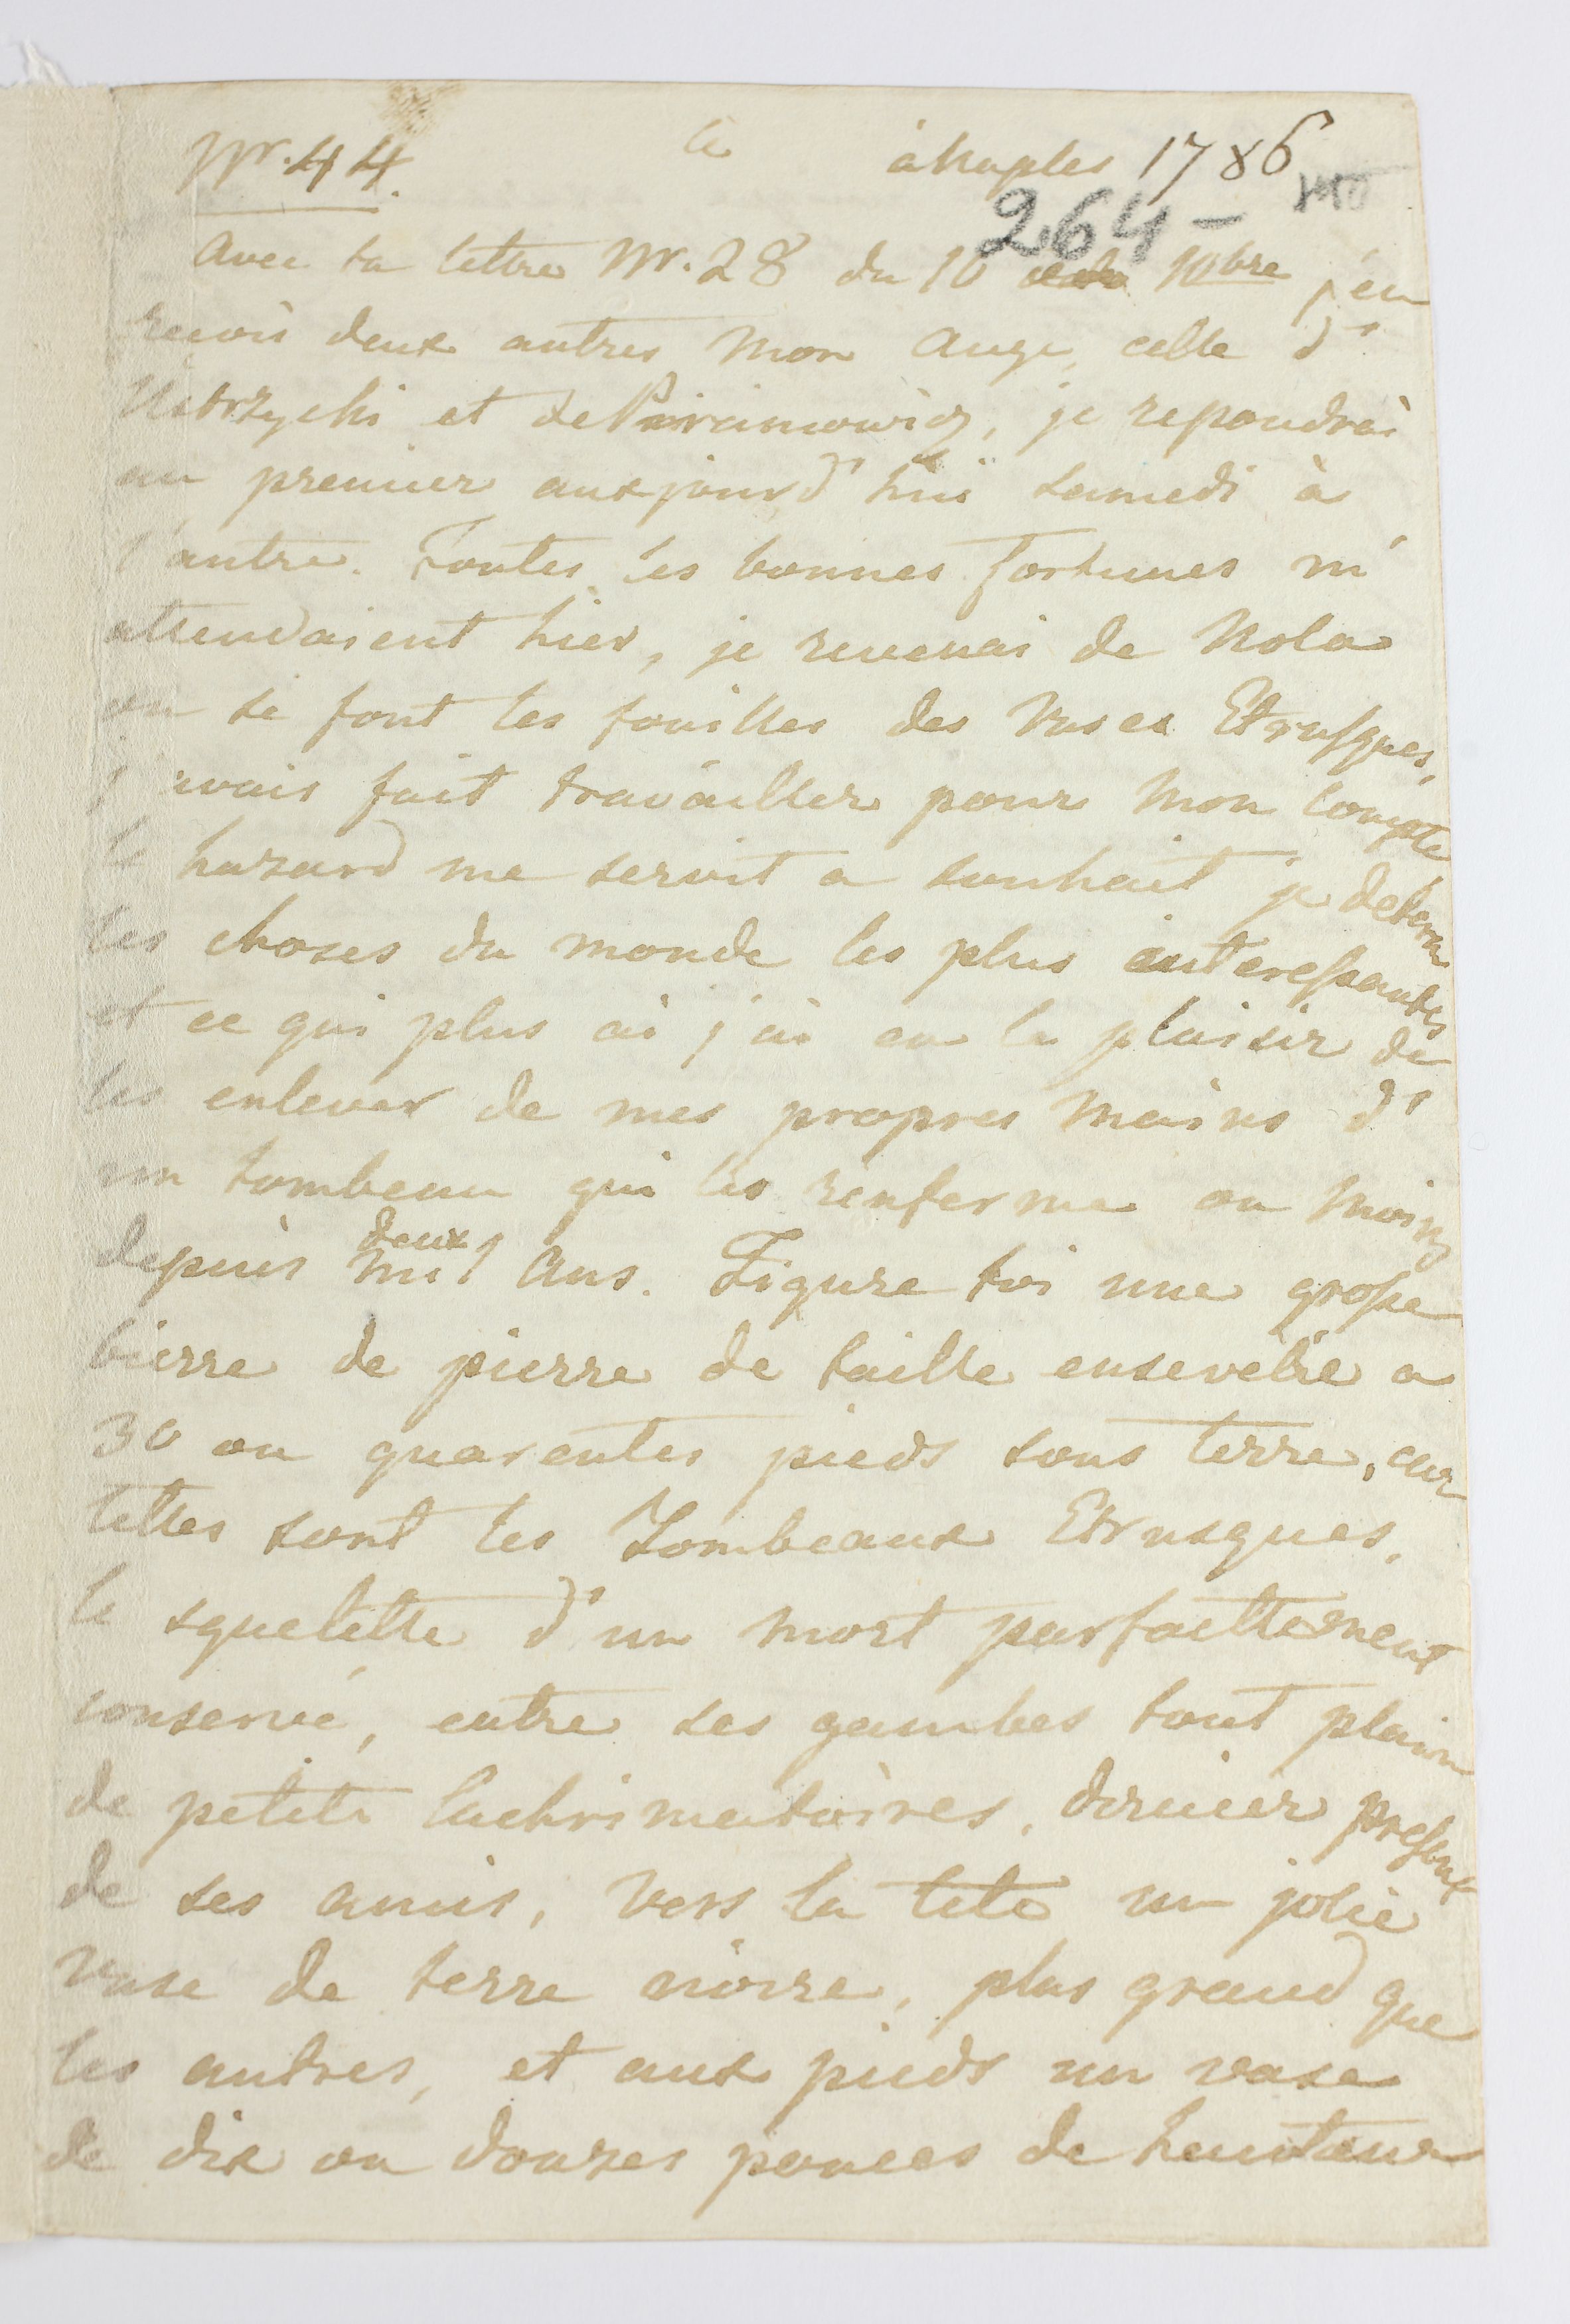 Nr. 44. le à Naples 1786
264 -
Avec ta lettre Nr. 28 du 10 10bre j'en
recois deux autres mon ange, celle d'
et de Piramowicz, je repondrai
au premier aux jourd'hui samedi à
l'autre. Toutes les bonnes fortunes m'
attendaient hier, je revenai de Nola
ou se font les fouilles des Vases Etrusques,
j'avais fait travailler pour mon compte
le hazard me servit a souhait je deterra
les choses du monde les plus interessantes
et ce qui plus ai j'ai eu le plaisir de
les enlever de mes propres mains d'
un tombeau qui les renferme au moins
depuis deux mil ans. Figure toi une grosse
bierre de pierre de taille ensevelie a
30 ou quarentes pieds sous terre, car
telles sont les Tombeaux Etrusques,
le squelette d'un mort parfaittement
conservé, entre ses gambes tout plain
de petits lachrimatoires, dernier present
de ses amis, vers la tete un jolie
vase de terre noire, plus grand que
les autres, et aux pieds un vase
de dix ou douzes pouces de hauteur